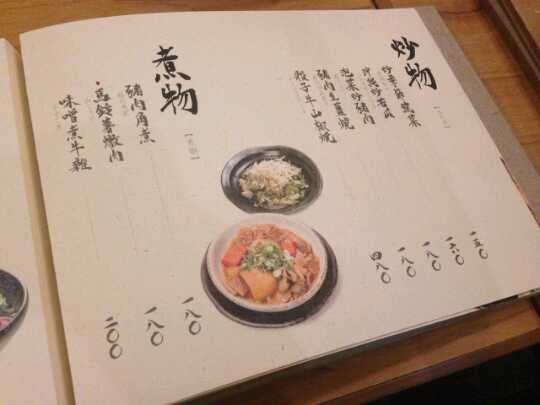 炒物
炒季節蔬菜
沖繩炒苦瓜
泡菜炒豬肉
豬肉生薑燒
骰子牛山椒燒
一五〇
一六〇
一八〇
一八〇
四八〇
煮物
豬肉角煮
馬鈴薯燉肉
味噌煮牛雜
一八〇
一八〇
二〇〇